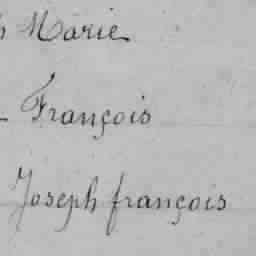 Marie
François
Joseph françois